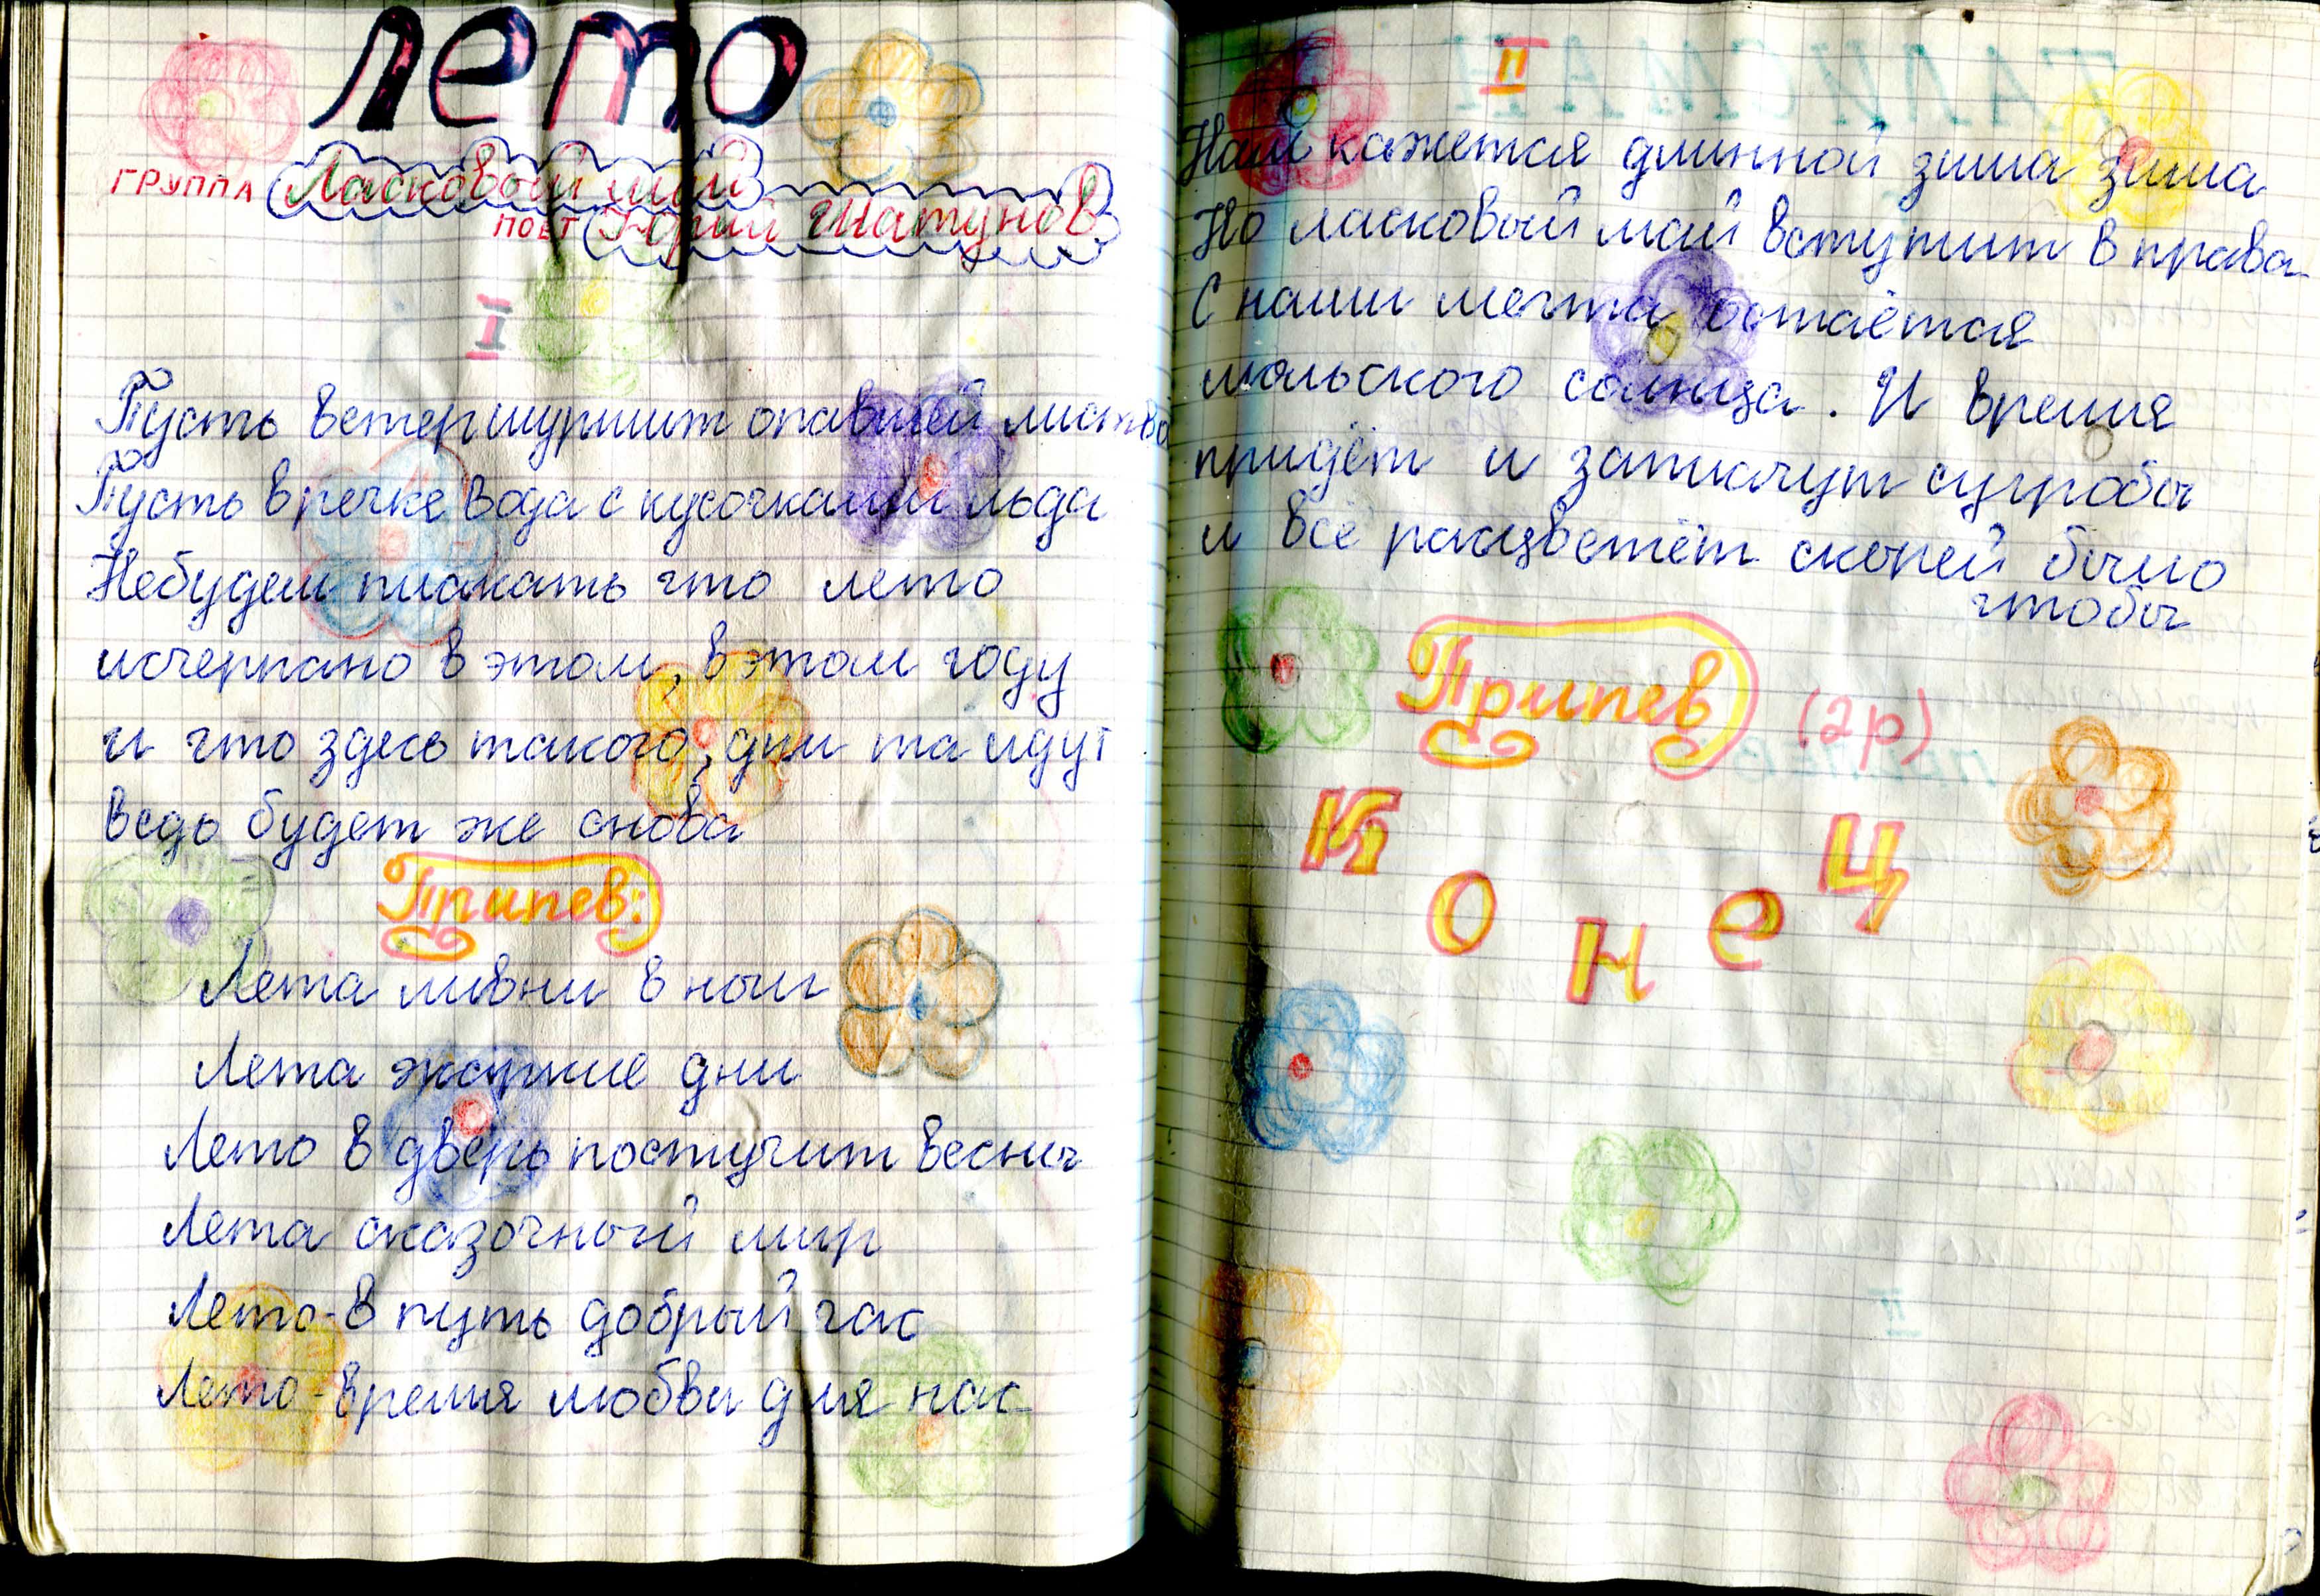 лето
ГРУППА Ласковый май
ПОЁТ Юрий Шатунов
I
Пусть ветер шуршит опавшей листвой
Пусть в речке вода с кусочками льда
Небудем плакать что лето
исчерпано в этом, в этом году
и что здесь такого, дни та идут
ведь будет же снова
Припев:
Лета ливни в ночи
Лета жаркие дни
Лето в дверь постучит весны
Лета сказочный мир
Лето-в путь добрый час
Лето-время любви для нас
II
Нам кажется длинной зима зима
Но ласковый май вступит в права
С нами мечта остаётся
июльского солнца. И время
придёт и заплачут сугробы
и всё расцветёт скорей было
чтобы
Припев (2р)
Конец